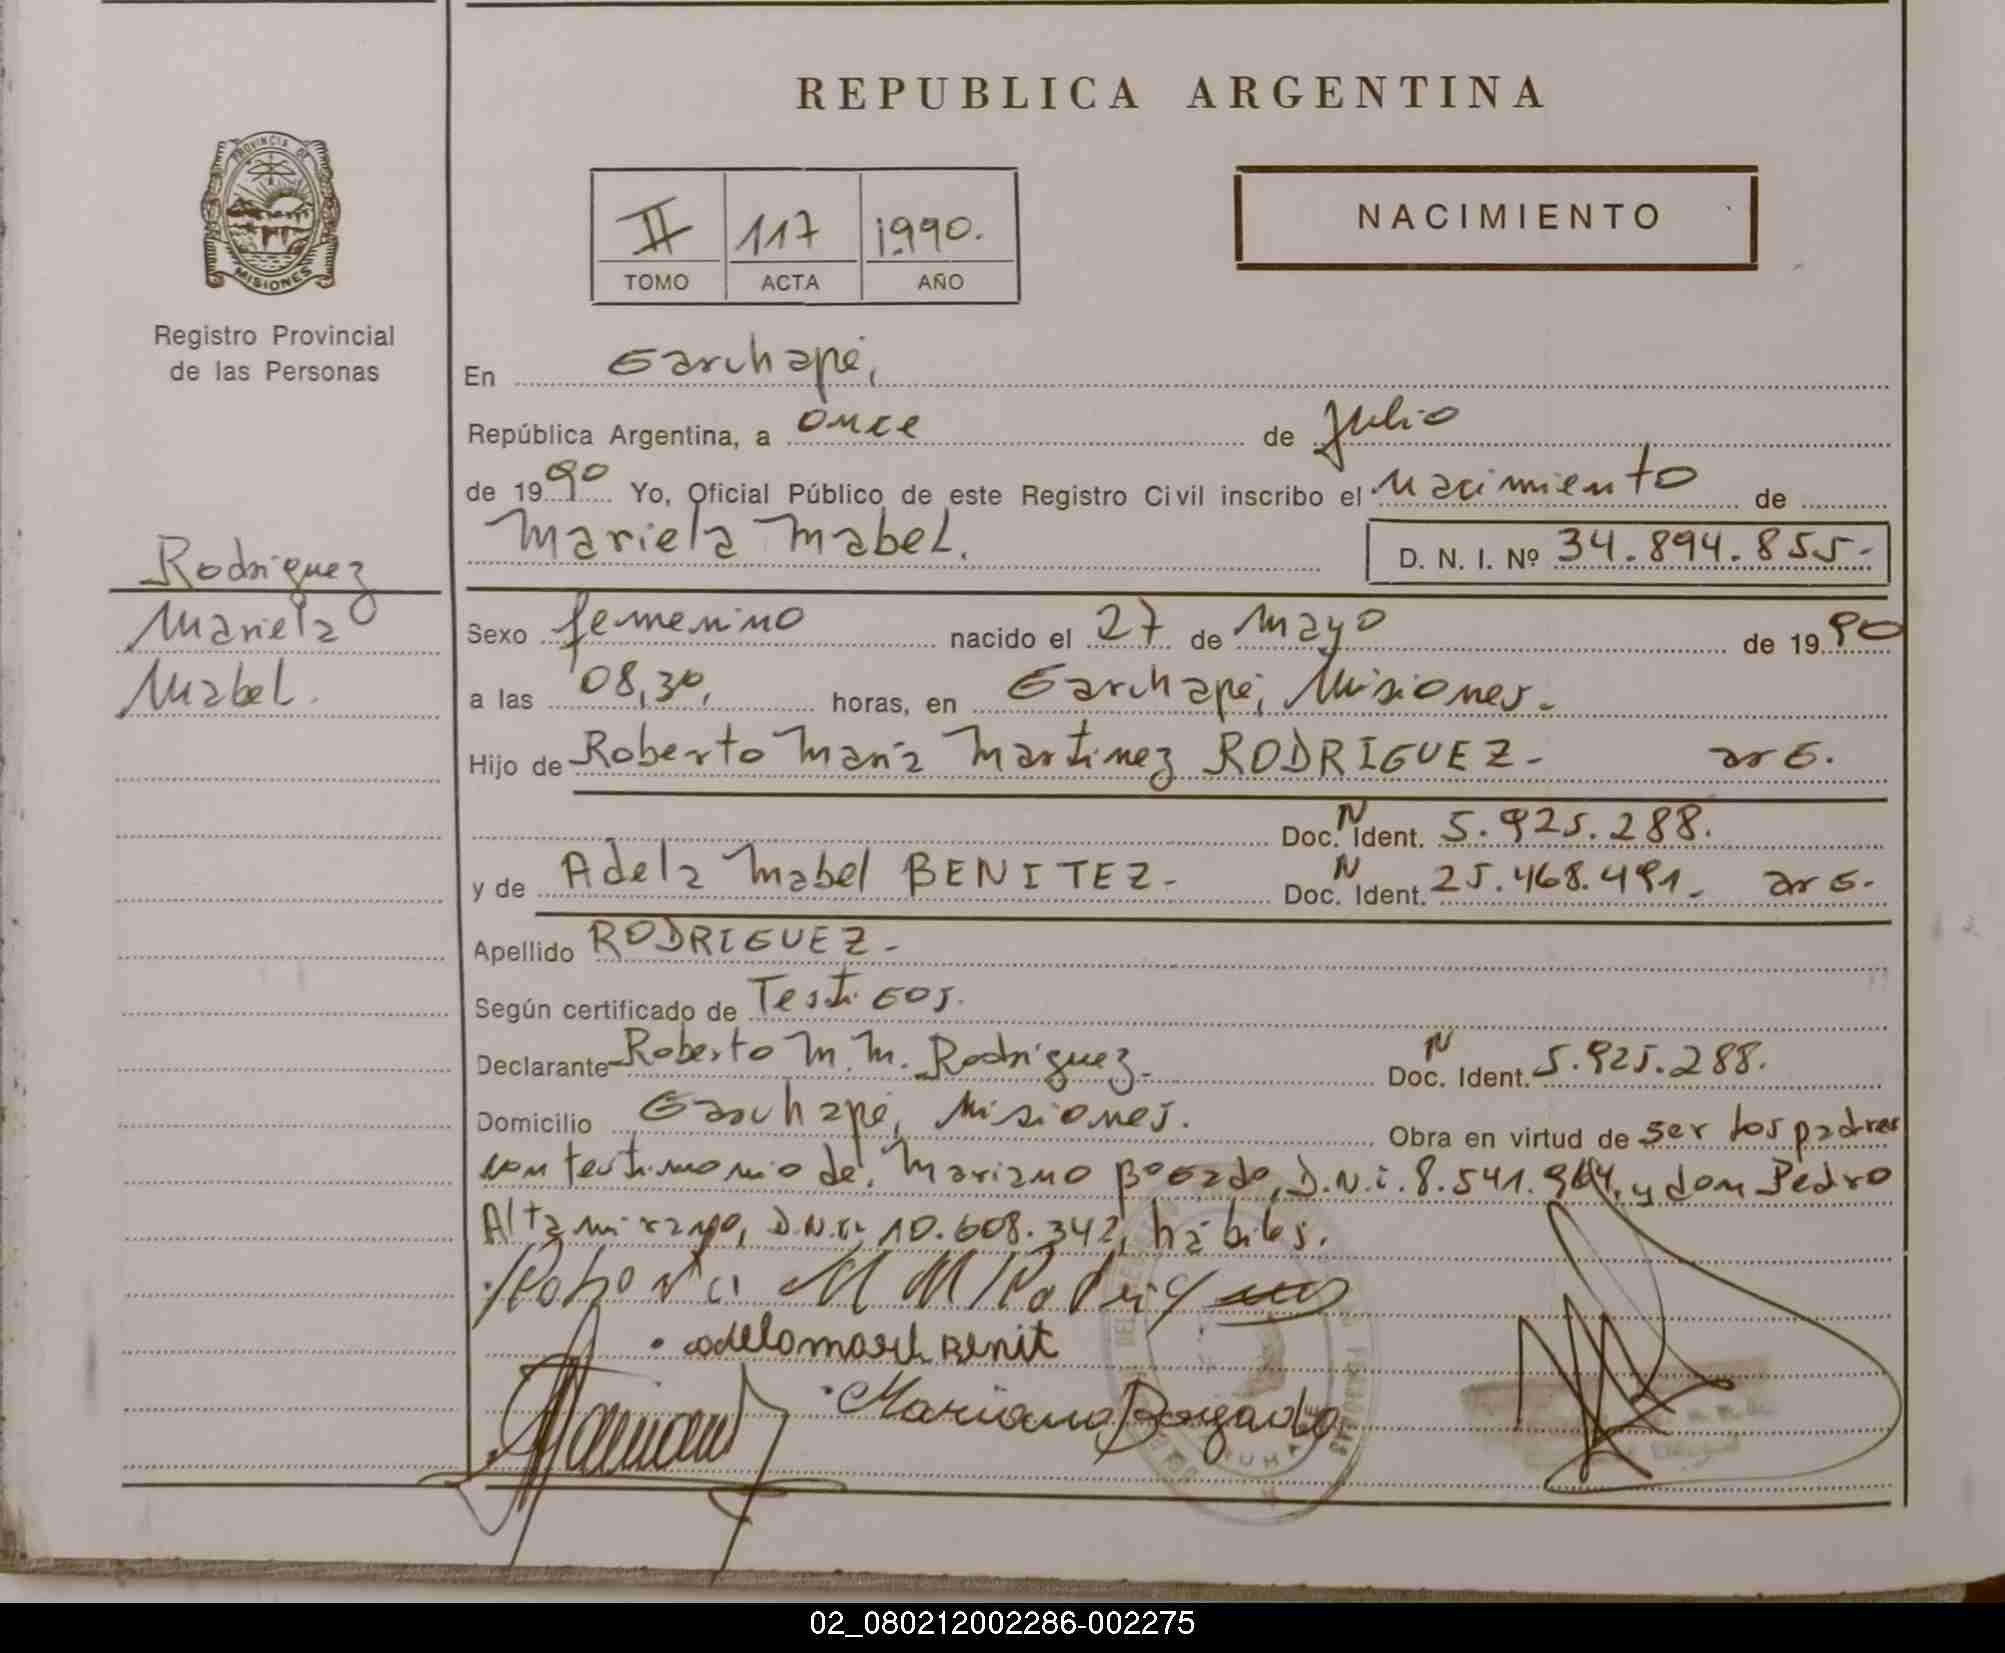 REPUBLICA ARGENTINA
PROVINCIA DE
MISIONES
Registro Provincial
de las Personas
II 117 1990.
TOMO ACTA AÑO
NACIMIENTO
En Garuhapé,
República Argentina, a once de Julio
de 1990 Yo, Oficial Público de este Registro Civil inscribo el Nacimiento de
Mariela Mabel. D. N. I. Nº 34.894.855-
Rodriguez
Mariela
Mabel.
Sexo femenino nacido el 27 de Mayo de 1990
a las 08,30, horas, en Garuhapé, Misiones.-
Hijo de Roberto María Martinez RODRIGUEZ- arg.
Doc. N Ident. 5.925.288.
y de Adela Mabel BENITEZ- Doc. N Ident. 25.468.491- arg.
Apellido RODRIGUEZ-
Según certificado de Testigos.
Declarante Roberto M. M. Rodriguez- Doc. N Ident. 5.925.288.
Domicilio Garuhapé, Misiones. Obra en virtud de ser los padres
con testimonio de, Mariano Bogado, D.N.i. 8.541.964, y don Pedro
Altamirano, D.N.i. 10.608.342, hábiles.
Roberto M M Rodriguez
Mariano Bogado
02_080212002286-002275